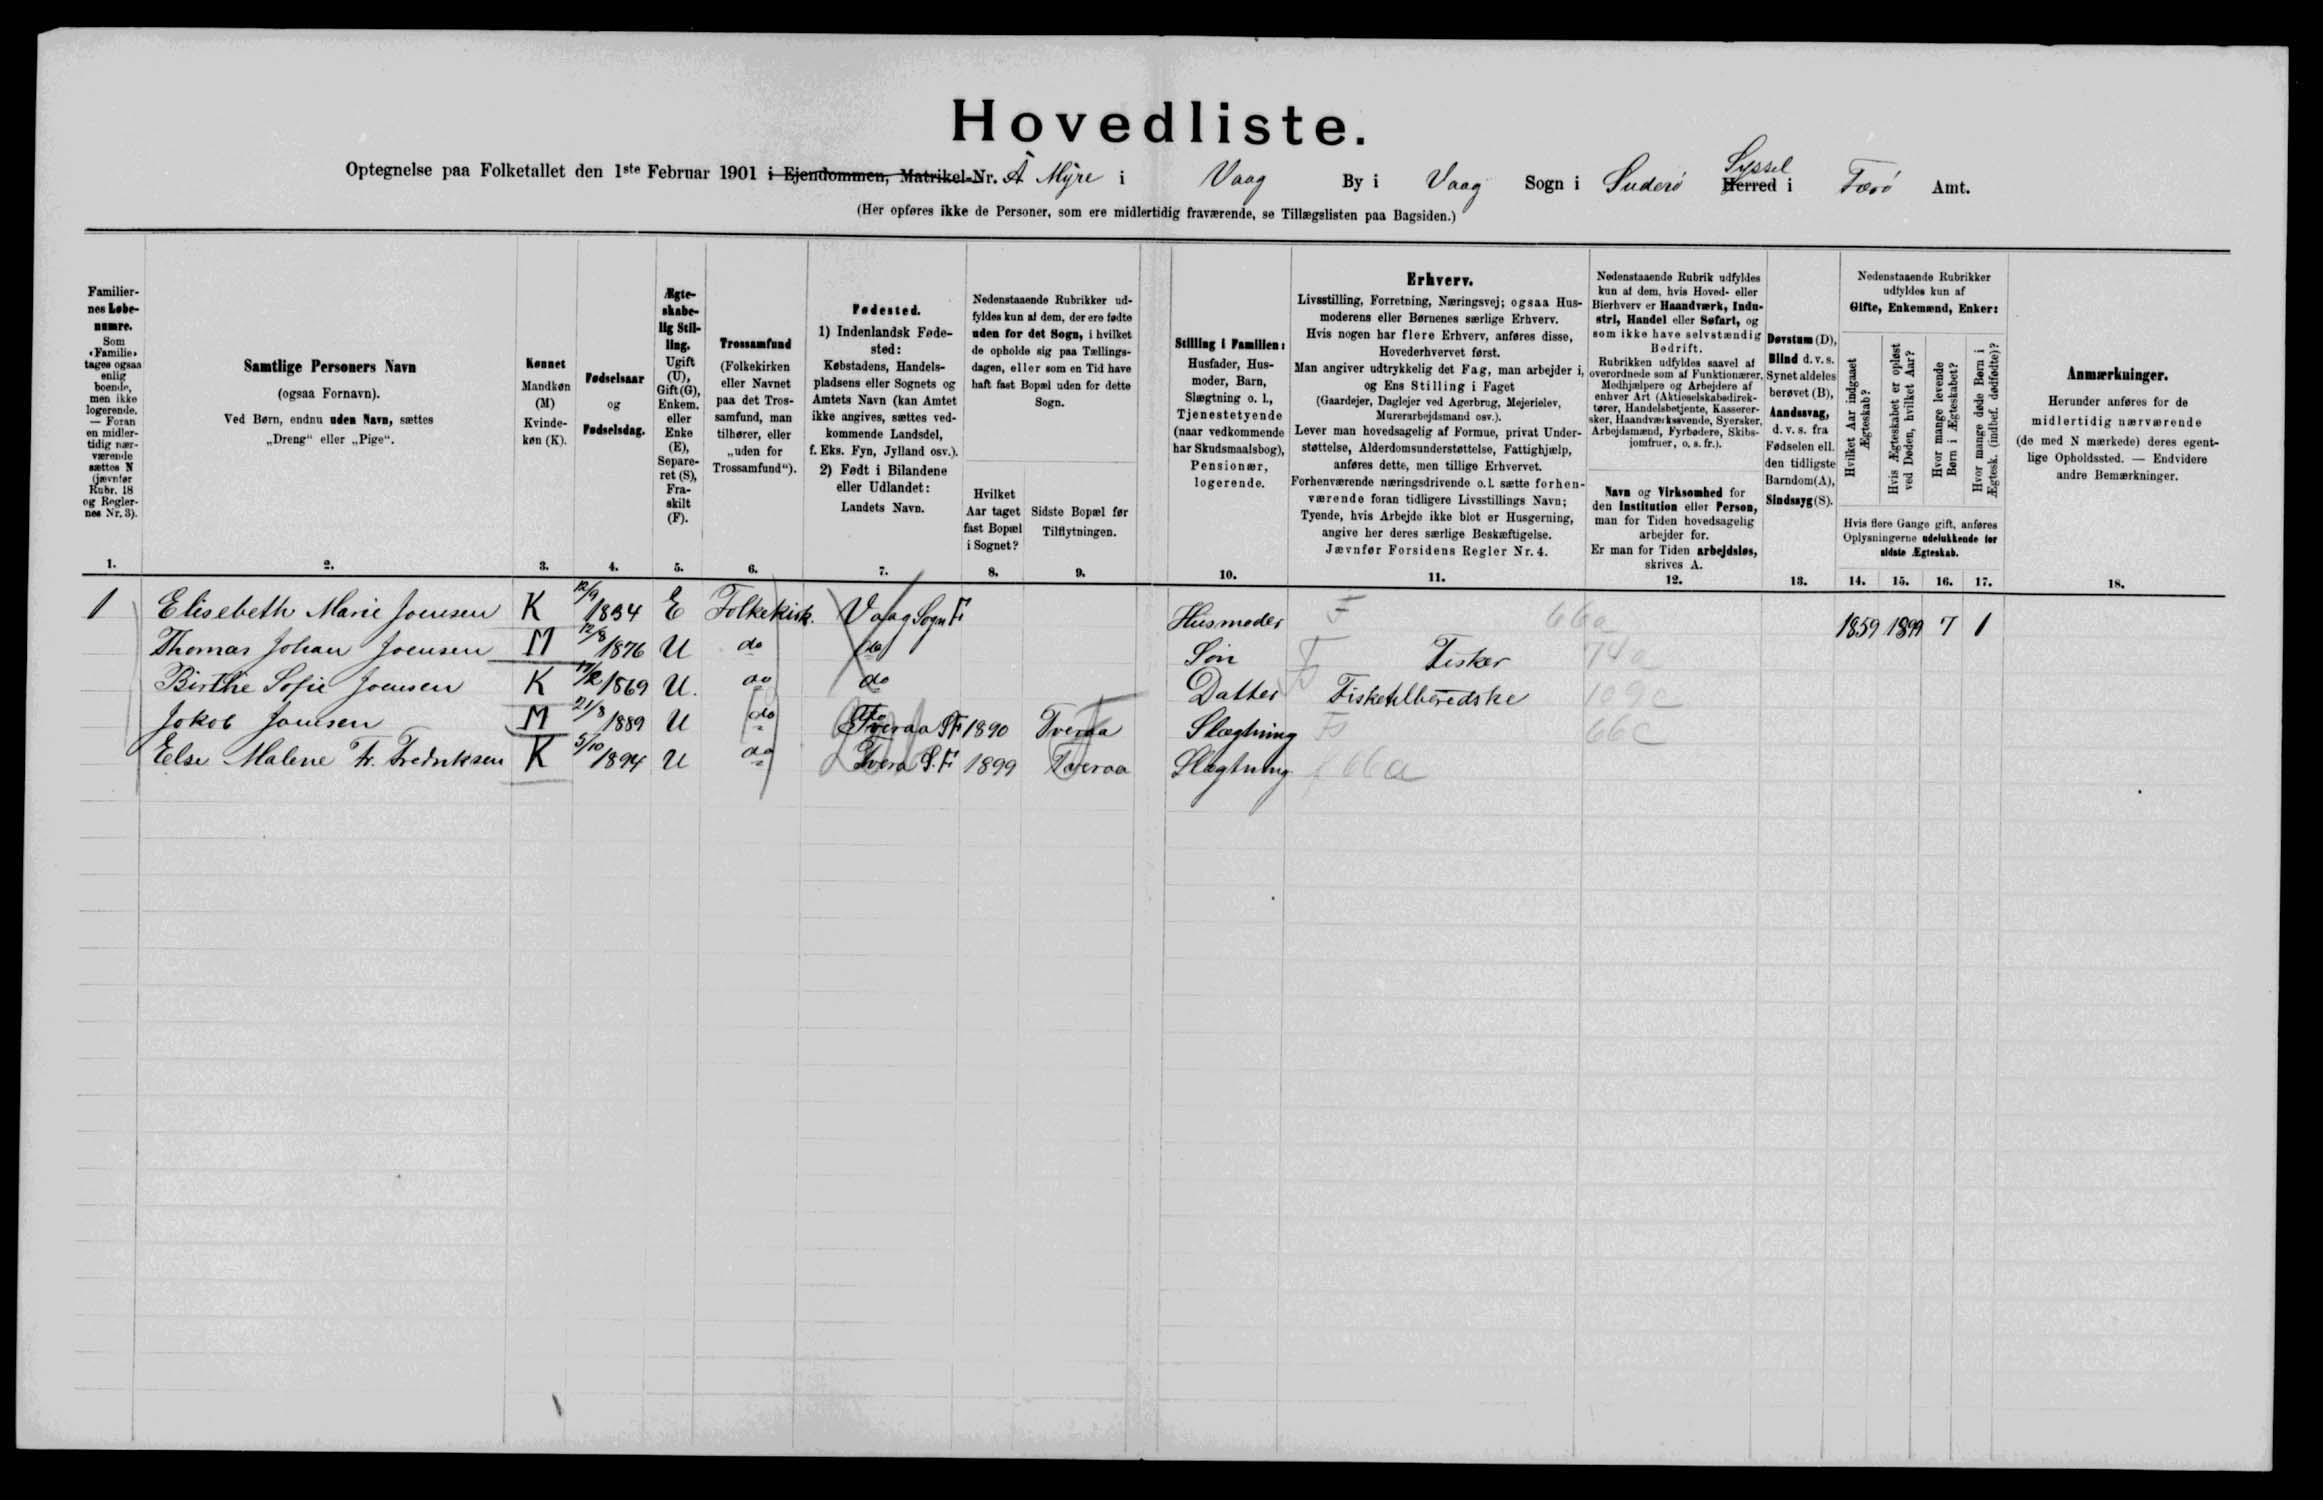 Hovedliste.
Optegnelse paa Folketallet den 1ste Februar 1901 i Ejendommen, Matrikel-Nr. Á Mýre i Vaag By i Vaag Sogn i Suderö Herred Syssel i Færö Amt.
(Her opføres ikke de Personer, som ere midlertidig fraværende, se Tillægslisten paa Bagsiden.)
Familiernes Løbenumre.
Som «Familie» tages ogsaa enlig boende, men ikke logerende. — Foran en midlertidig nærværende sættes N (jævnfør Rubr. 18 og Reglernes Nr. 3).
1.
Samtlige Personers Navn
(ogsaa Fornavn).
Ved Børn, endnu uden Navn, sættes
„Dreng“ eller „Pige“.
2.
Kønnet
Mandkøn (M)
Kvindekøn (K).
3.
Fødselsaar
og
Fødselsdag.
4.
Ægteskabelig Stilling.
Ugift (U), Gift (G), Enkem. eller Enke (E), Separeret (S), Fraskilt (F).
5.
Trossamfund
(Folkekirken eller Navnet paa det Trossamfund, man tilhører, eller „uden for Trossamfund“).
6.
Fødested.
1) Indenlandsk Fødested:
Købstadens, Handelspladsens eller Sognets og Amtets Navn (kan Amtet ikke angives, sættes vedkommende Landsdel, f. Eks. Fyn, Jylland osv.).
2) Født i Bilandene eller Udlandet:
Landets Navn.
7.
Nedenstaaende Rubrikker udfyldes kun af dem, der ere fødte uden for det Sogn, i hvilket de opholde sig paa Tællingsdagen, eller som en Tid have haft fast Bopæl uden for dette Sogn.
Hvilket Aar taget fast Bopæl i Sognet?
8.
Sidste Bopæl før Tilflytningen.
9.
Stilling i Familien:
Husfader, Husmoder, Barn, Slægtning o. l., Tjenestetyende (naar vedkommende har Skudsmaalsbog), Pensionær, logerende.
10.
Erhverv.
Livsstilling, Forretning, Næringsvej; ogsaa Husmoderens eller Børnenes særlige Erhverv.
Hvis nogen har flere Erhverv, anføres disse, Hovederhvervet først.
Man angiver udtrykkelig det Fag, man arbejder i, og Ens Stilling i Faget
(Gaardejer, Daglejer ved Agerbrug, Mejerielev, Murerarbejdsmand osv.).
Lever man hovedsagelig af Formue, privat Understøttelse, Alderdomsunderstøttelse, Fattighjælp, anføres dette, men tillige Erhvervet.
Forhenværende næringsdrivende o. l. sætte forhenværende foran tidligere Livsstillings Navn;
Tyende, hvis Arbejde ikke blot er Husgerning, angive her deres særlige Beskæftigelse.
Jævnfør Forsidens Regler Nr. 4.
11.
Nedenstaaende Rubrik udfyldes kun af dem, hvis Hoved- eller Bierhverv er Haandværk, Industri, Handel eller Søfart, og som ikke have selvstændig Bedrift.
Rubrikken udfyldes saavel af overordnede som af Funktionærer, Medhjælpere og Arbejdere af enhver Art (Aktieselskabsdirektører, Handelsbetjente, Kasserersker, Haandværkssvende, Syersker, Arbejdsmænd, Fyrbødere, Skibsjomfruer, o. s. fr.).
Navn og Virksomhed for den Institution eller Person, man for Tiden hovedsagelig arbejder for.
Er man for Tiden arbejdsløs, skrives A.
12.
Døvstum (D), Blind d. v. s. Synet aldeles berøvet (B), Aandssvag, d. v. s. fra Fødselen ell. den tidligste Barndom (A), Sindssyg (S).
13.
Nedenstaaende Rubrikker udfyldes kun af
Gifte, Enkemænd, Enker:
Hvilket Aar indgaaet Ægteskab?
Hvis Ægteskabet er opløst ved Døden, hvilket Aar?
Hvor mange levende Børn i Ægteskabet?
Hvor mange døde Børn i Ægtesk. (indbef. dødfødte)?
Hvis flere Gange gift, anføres Oplysningerne udelukkende for sidste Ægteskab.
14. 15. 16. 17.
Anmærkninger.
Herunder anføres for de midlertidig nærværende (de med N mærkede) deres egentlige Opholdssted. — Endvidere andre Bemærkninger.
18.
1 Elisebeth Marie Joensen K 12/9 1834 E Folkekirk. Vaag Sogn F Husmoder F 66a 1859 1899 7 1
Thomas Johan Joensen M 12/8 1876 U do do Søn F Fisker 74a
Birthe Sofie Joensen K 17/2 1869 U. do do Datter Fisketilberedske 109c
Jokob Joensen M 21/8 1889 U do Tveraa S F 1890 Tveraa Slægtning 66c
Else Malene Fr. Fredriksen K 5/10 1894 U do Tvera S. F 1899 Tveraa Slægtning 66a